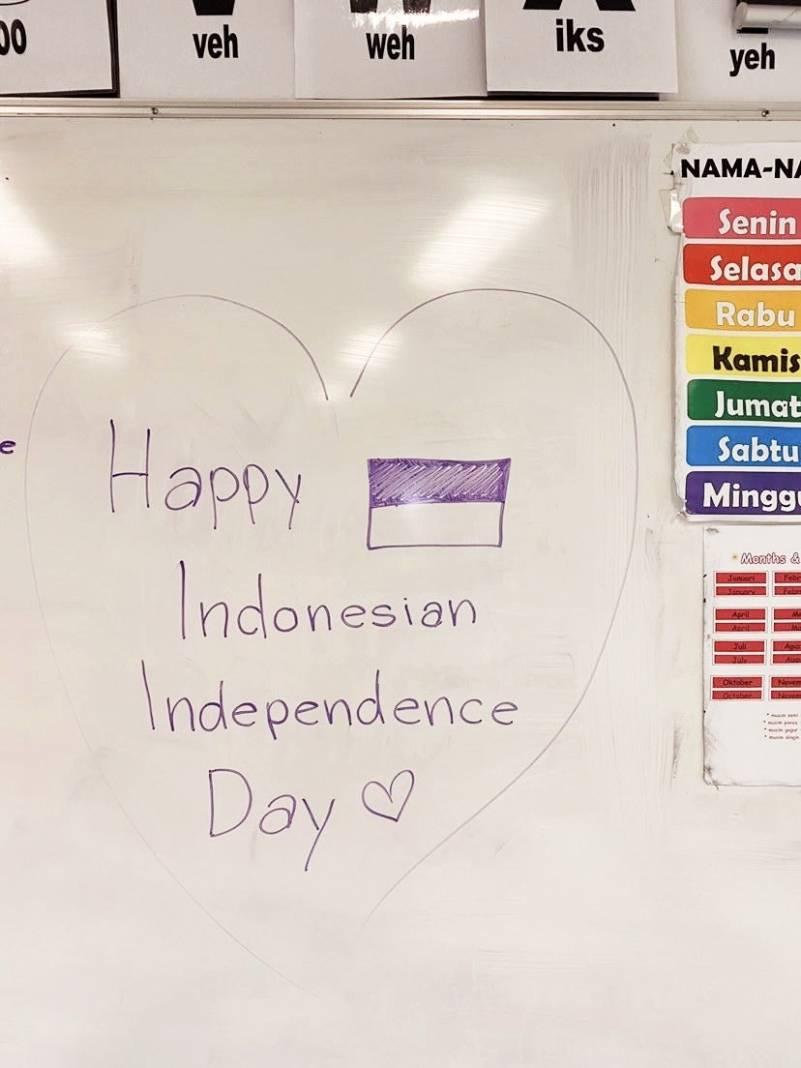 00
veh
weh
iks
yeh
NAMA-NA
Senin
Selasa
Rabu
Kamis
Jumat
Sabtu
Minggu
e
Happy
Indonesian
Independence
Day ♡
Months &
Januari
January
April
April
Juli
July
Oktober
October